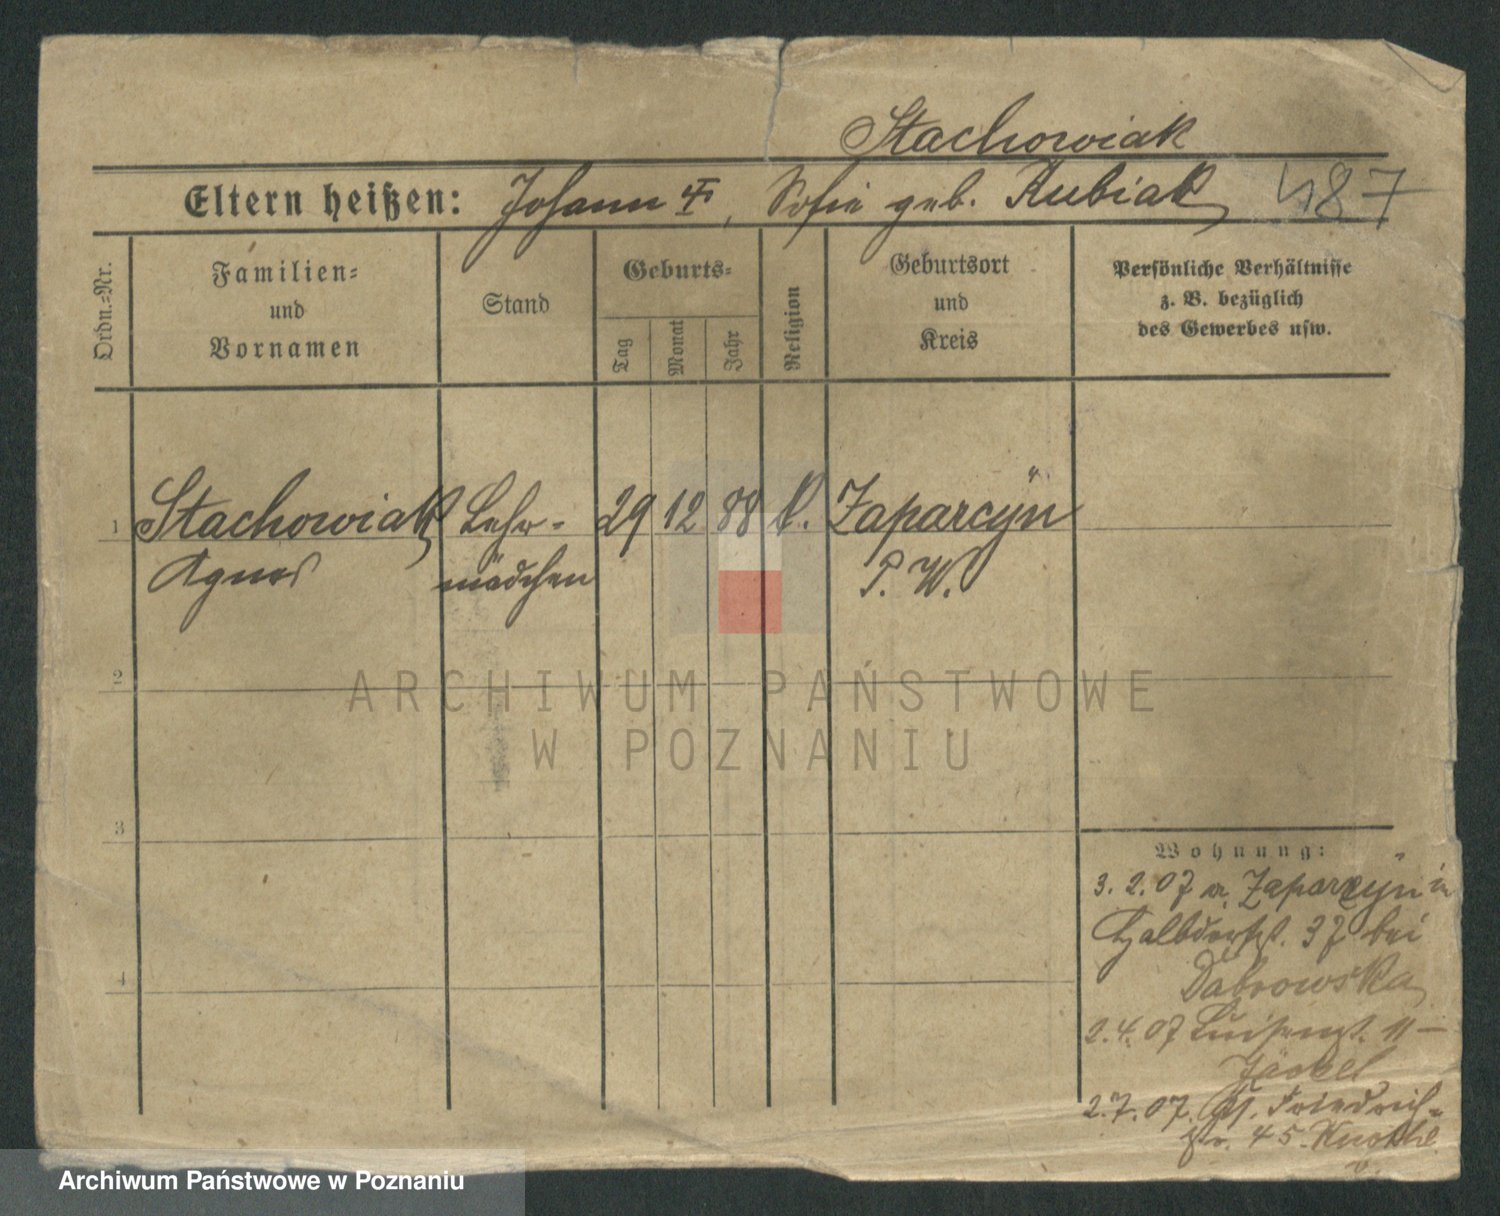 Stachowiak
Eltern heißen: Johann ✝, Sofie geb. Kubiak, 487
Ordn.-Nr.
Familien- und Vornamen
Stand
Geburts-
Tag
Monat
Jahr
Religion
Geburtsort und Kreis
Persönliche Verhältnisse
z. B. bezüglich
des Gewerbes usw.
1 Stachowiak Lehr- 29 12 88 k. Zaparcÿn
Agnes mädchen P. W.
2
3
4
Wohnung:
3. 2. 07 a. Zaparcÿn in
Halbdorfst. 37 bei
Dabrowska
2. 4. 07 Luisenst. 11 –
Jäckel
2. 7. 07. Friedrich-
str. 45
ARCHIWUM PAŃSTWOWE
W POZNANIU
Archiwum Państwowe w Poznaniu